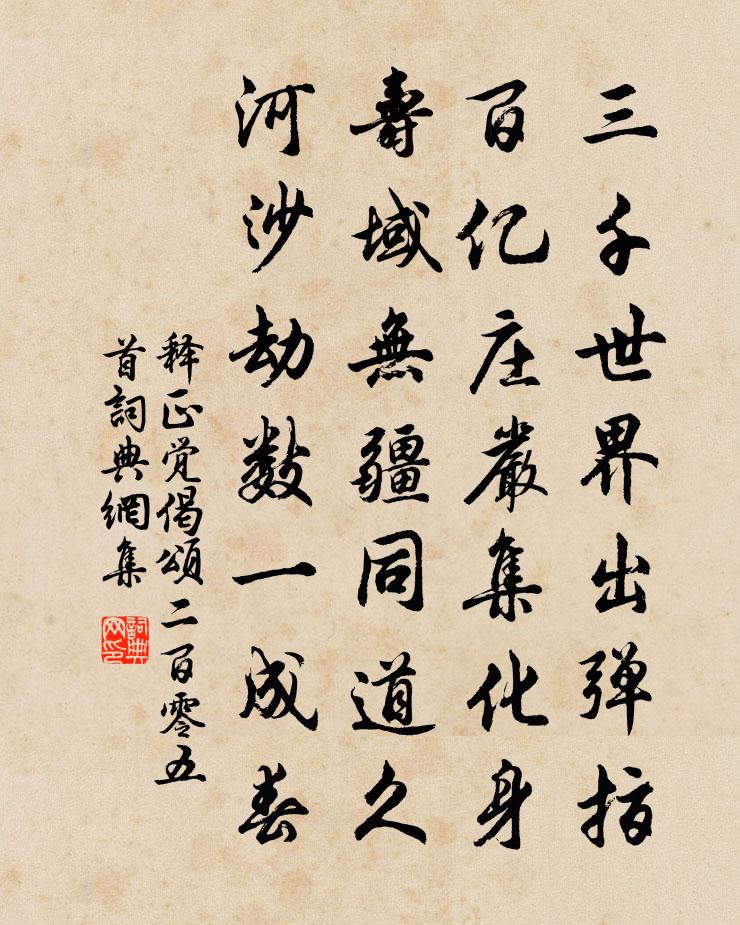 三千世界出弹指
百亿庄嚴集化身
壽域無疆同道久
河沙劫数一成春
释正觉偈頌二百零五
首詞典網集
詞典
网印